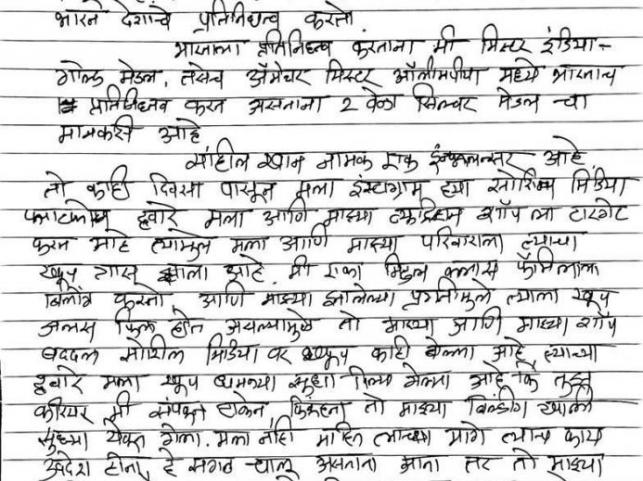 भारत देशाचे प्रतिनिधत्व करतो
भारताला प्रतिनिधत्व करताना मी मिस्टर इंडिया -
गोल्ड मेडल, तसेच अ‍ॅमेचर मिस्टर ऑलीमपीया मध्ये भारताच
प्रतिनिधत्व करत असताना 2 वेळा सिल्वर मेडल चा
मानकरी आहे
साहील खान नामक एक इंन्फ्लुएन्सर आहे
तो काही दिवसा पासून मला इंस्टाग्राम ह्या सोशियल मिडिया
प्लाटफोम द्वारे मला आणि माझ्या शॉप ला टारगेट
करत आहे त्यामुळे मला आणि माझ्या परिवाराला त्याचा
खूप त्रास झाला आहे. मी एका मिडल क्लास फॅमिलीला
बिलाँग करतो आणि माझ्या झालेल्या प्रगतीमुळे त्याला खूप
जलस फिल होत असल्यामुळे तो माझ्या आणि माझ्या शॉप
बददल सोशील मिडिया वर खूप काही बोल्ला आहे त्याच्या
द्वारे मला खूप धमक्या सुध्दा दिल्या गेल्या आहे कि तुझ
करियर मी संपवून टाकेन, तो माझ्या बिल्डींग खाली
सुध्दा येवून गेला. मला नाही माहित त्याच्या मागे त्याचा काय
उद्देश होता, हे सगळ चालू असताना आता तर तो माझ्या